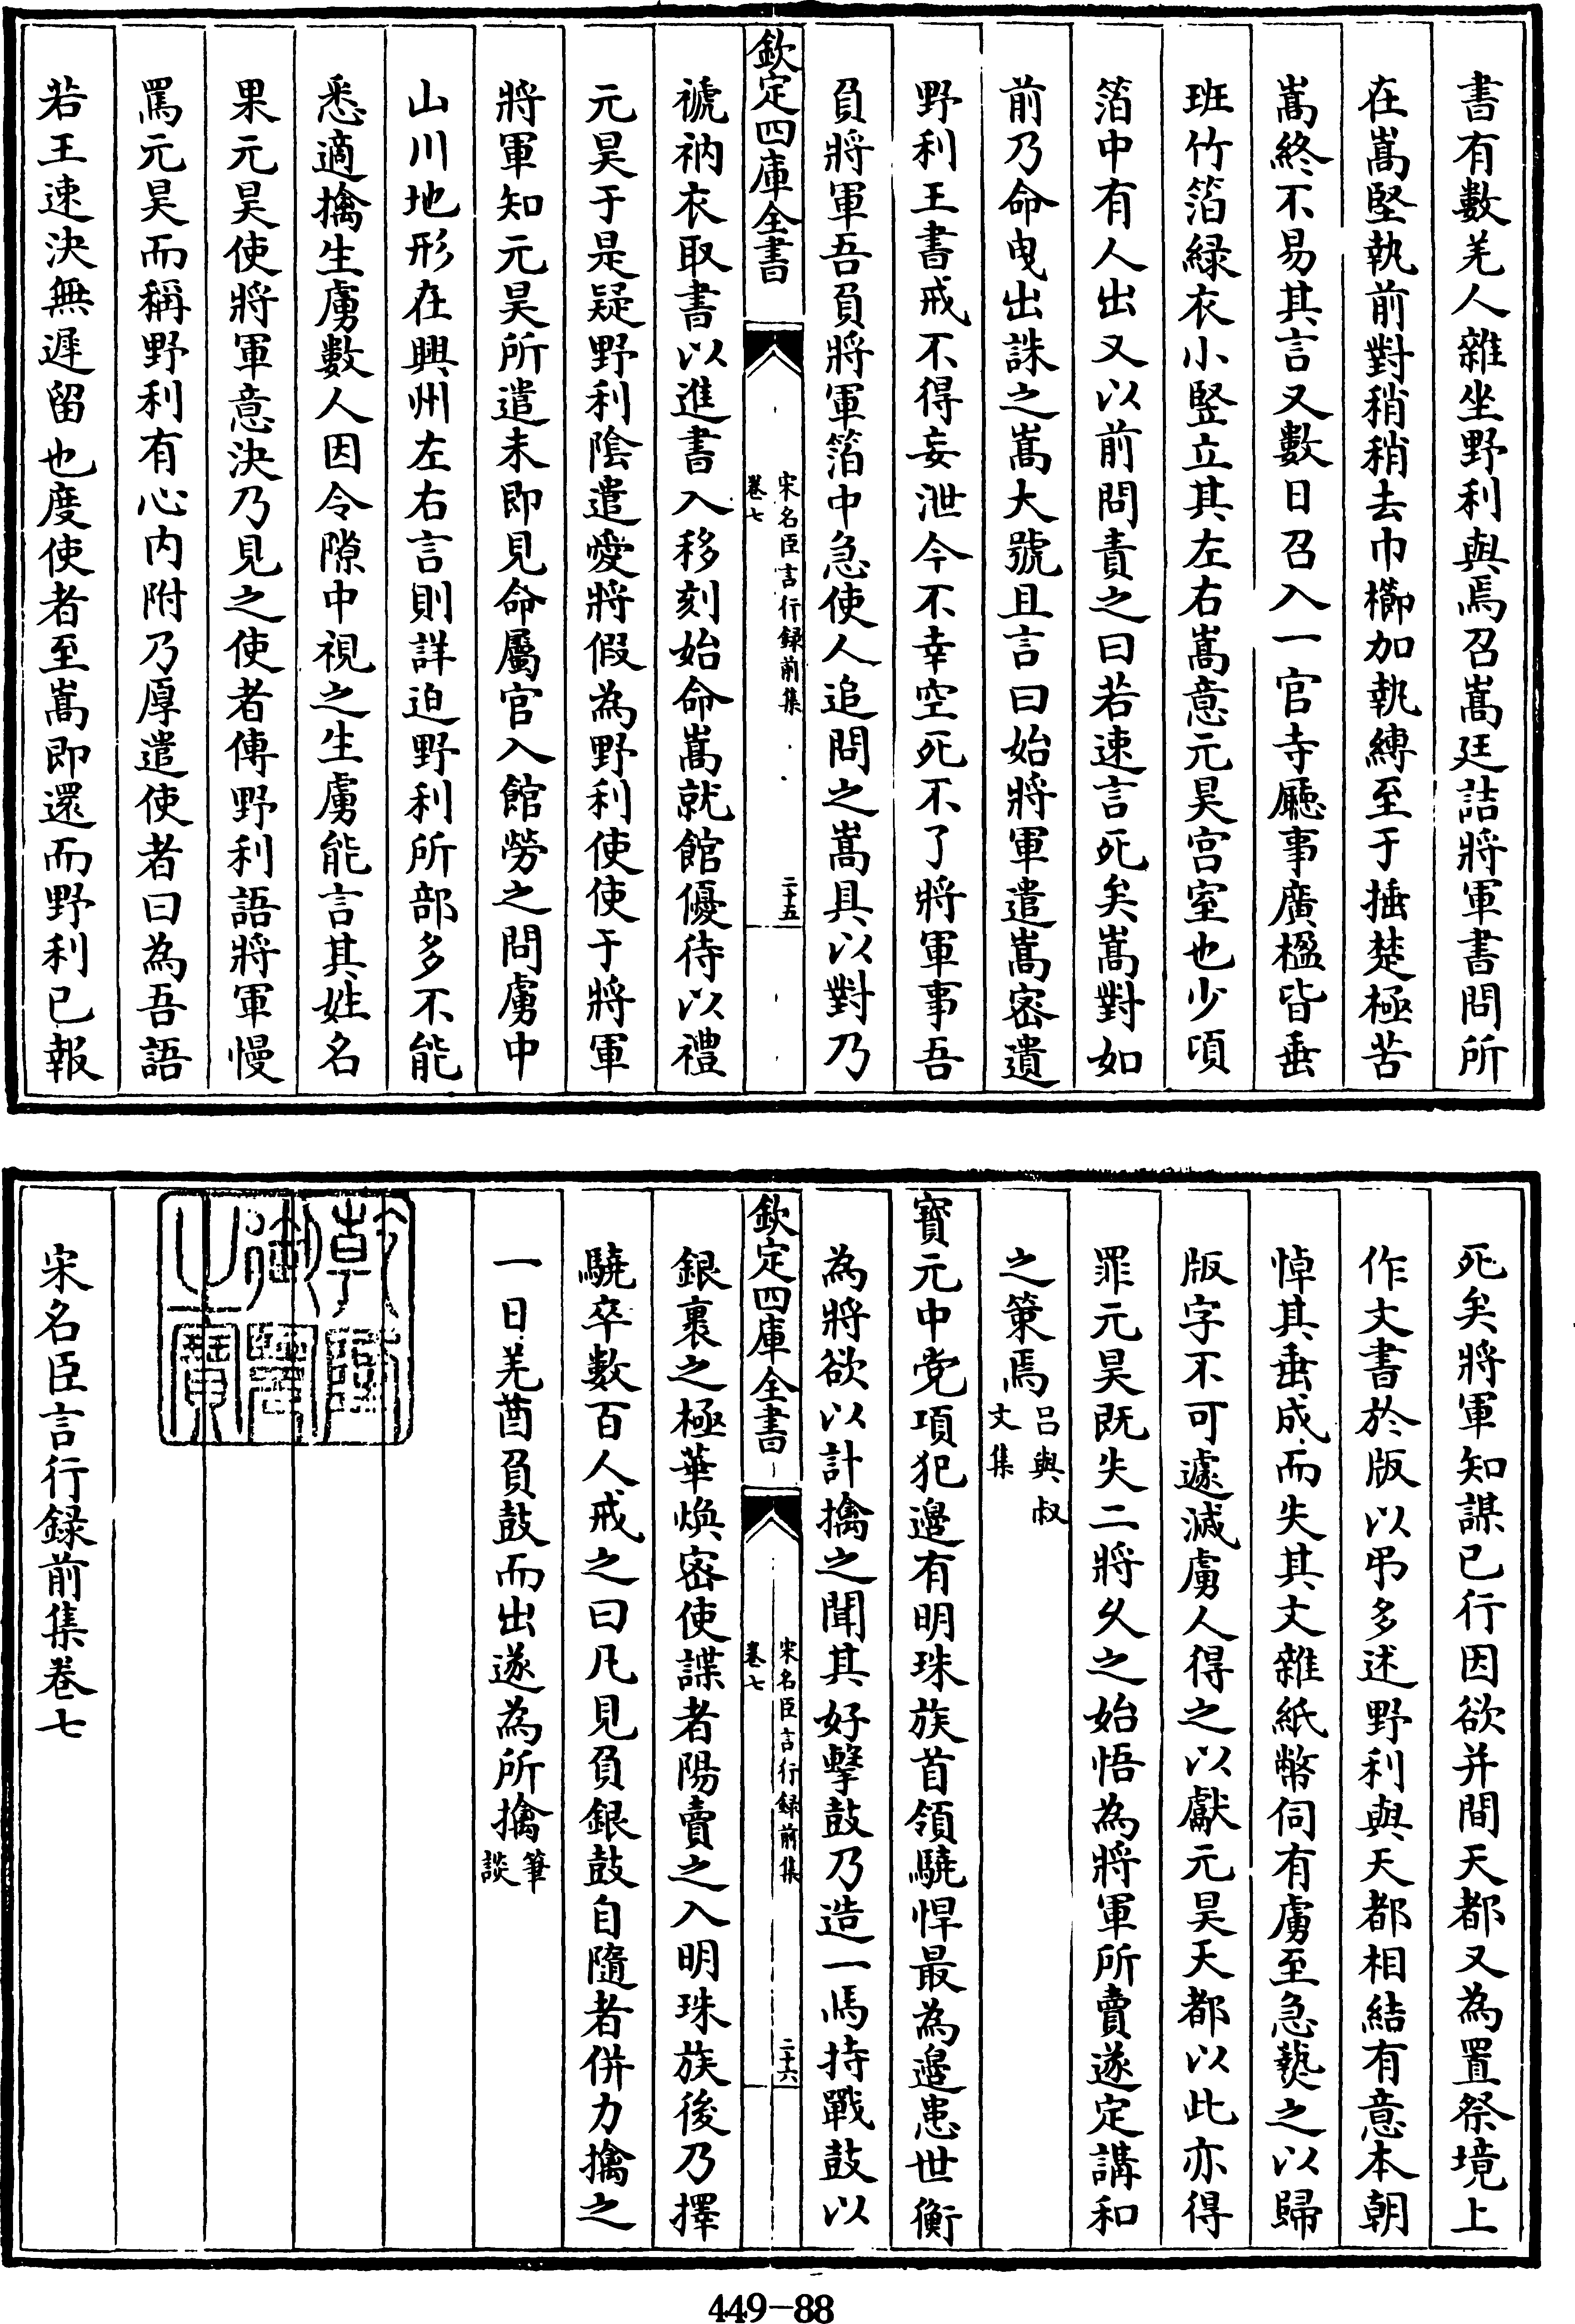 書有數羌人雜坐野利與焉召嵩廷詰將軍書問所
在嵩堅執前對稍稍去巾櫛加執縛至于捶楚極苦
嵩終不易其言又數日召入一官寺廳事廣楹皆垂
班竹箔緑衣小竪立其左右嵩意元昊宫室也少頃
箔中有人出又以前問責之曰若速言死矣嵩對如
前乃命曳出誅之嵩大號且言曰始將軍遣嵩密遺
野利王書戒不得妄泄今不幸空死不了將軍事吾
負將軍吾負將軍箔中急使人追問之嵩具以對乃
欽定四庫全書
宋名臣言行録前集
卷七
二十五
褫衲衣取書以進書入移刻始命嵩就館優待以禮
元昊于是疑野利陰遣愛將假為野利使使于將軍
將軍知元昊所遣未即見命屬官入館勞之問虜中
山川地形在興州左右言則詳迫野利所部多不能
悉適擒生虜數人因令隙中視之生虜能言其姓名
果元昊使將軍意決乃見之使者傳野利語將軍慢
罵元昊而稱野利有心内附乃厚遣使者曰為吾語
若王速決無遲留也度使者至嵩即還而野利已報
死矣將軍知謀已行因欲并間天都又為置祭境上
作文書於版以弔多述野利與天都相結有意本朝
悼其垂成而失其文雜紙幣伺有虜至急爇之以歸
版字不可遽滅虜人得之以獻元昊天都以此亦得
罪元昊既失二將久之始悟為將軍所賣遂定講和
之策焉吕與叔文集
寳元中党項犯邉有明珠族首領驍悍最為邉患世衡
為將欲以計擒之聞其好擊鼓乃造一馬持戰鼓以
欽定四庫全書
宋名臣言行録前集
卷七
二十六
銀裹之極華煥密使諜者陽賣之入明珠族後乃擇
驍卒數百人戒之曰凡見負銀鼓自隨者併力擒之
一日羌酋負鼓而出遂為所擒筆談
宋名臣言行録前集卷七
449-88